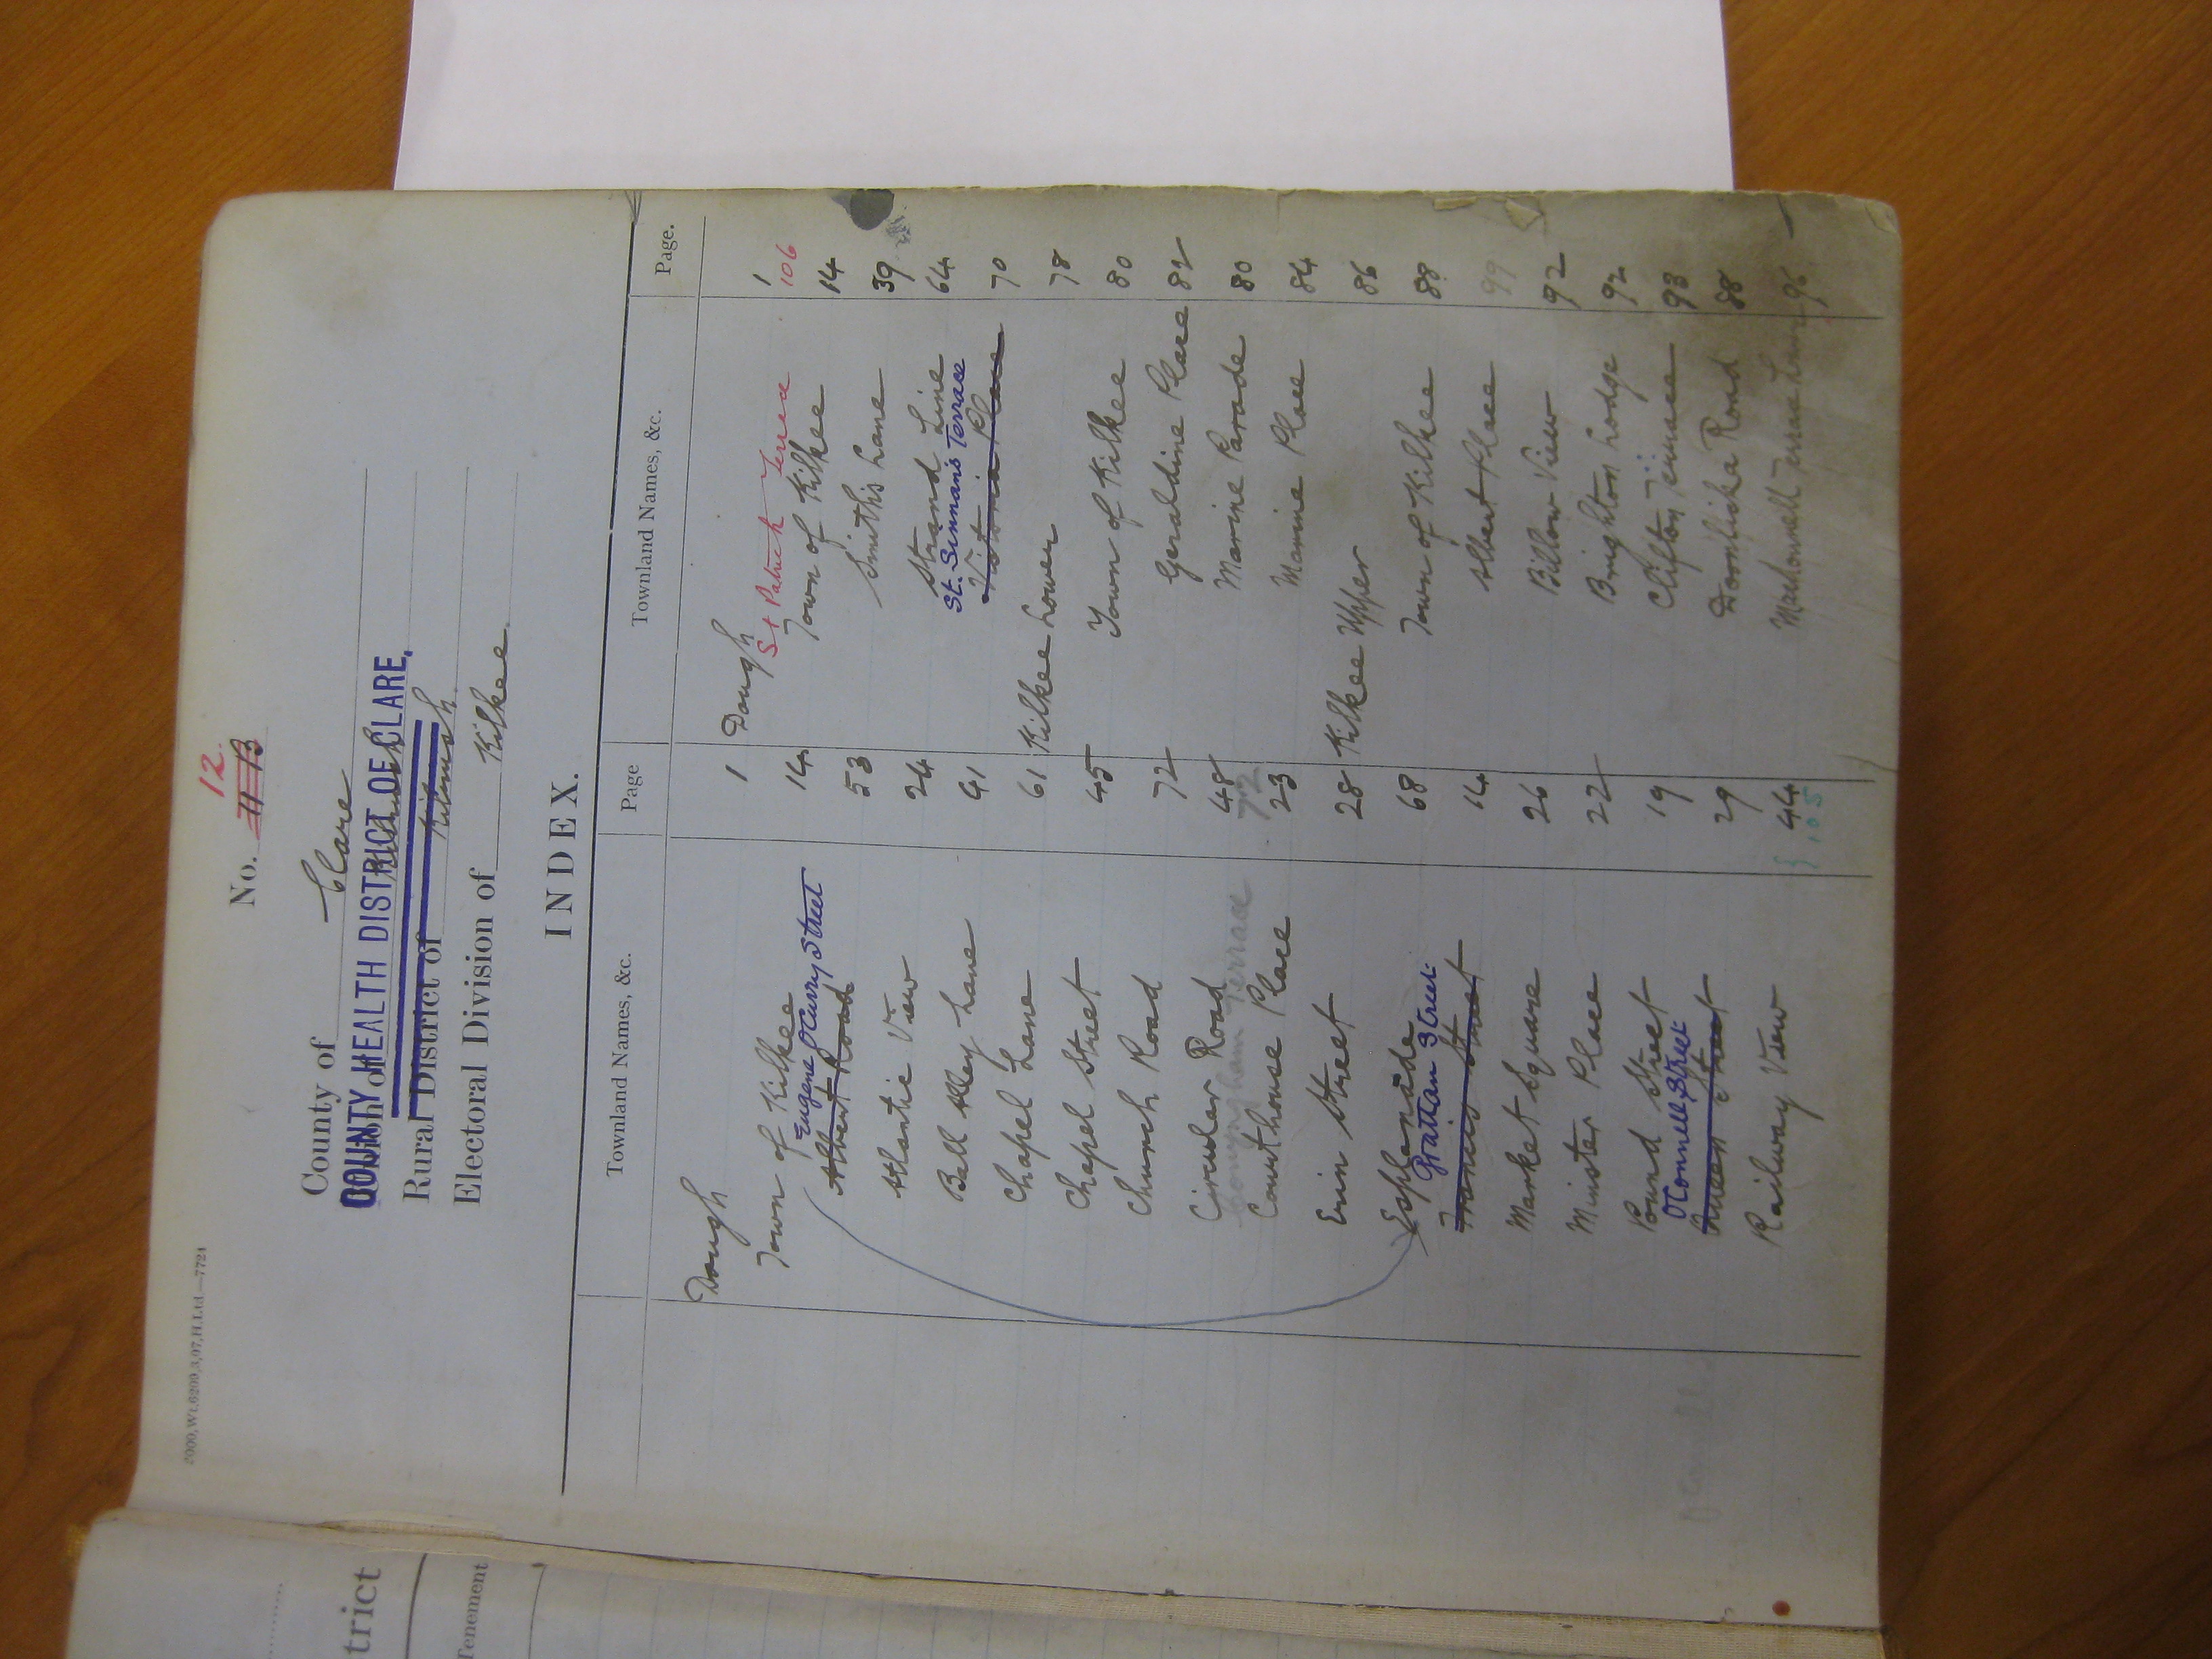 2000,Wt.6209,3,07,H.Ltd—7724
No. 11 B 12.
County of Clare
Union of
COUNTY HEALTH DISTRICT OF CLARE.
Rural District of Kilrush
Electoral Division of Kilkee.
INDEX.
Townland Names, &c. Page
Dough 1
Town of Kilkee 14
Eugene O'Curry Street
Albert Road 53
Atlantic View 24
Ball Alley Lane 41
Chapel Lane 61
Chapel Street 45
Church Road 72
Circular Road 48
Conyngham Terrace 72
Courthouse Place 23
Erin Street 28
Esplanade 68
Grattan Street
Francis Street 14
Market Square 26
Minister Place 22
Pound Street 19
O'Connell Street
Queen Street 29
Railway View 44
105
Townland Names, &c. Page.
Dough 1
St Patrick Terrace 106
Town of Kilkee 14
Smith's Lane 39
Strand Line 64
St. Sennan's Terrace
Victoria Place 70
Kilkee Lower 78
Town of Kilkee 80
Geraldine Place 82
Marine Parade 80
Marine Place 84
Kilkee Upper 86
Town of Kilkee 88
Albert Place 99
Billow View 92
Brighton Lodge 92
Clifton Terrace 93
Doonlisha Road 88
Terrace 96
trict
Tenement